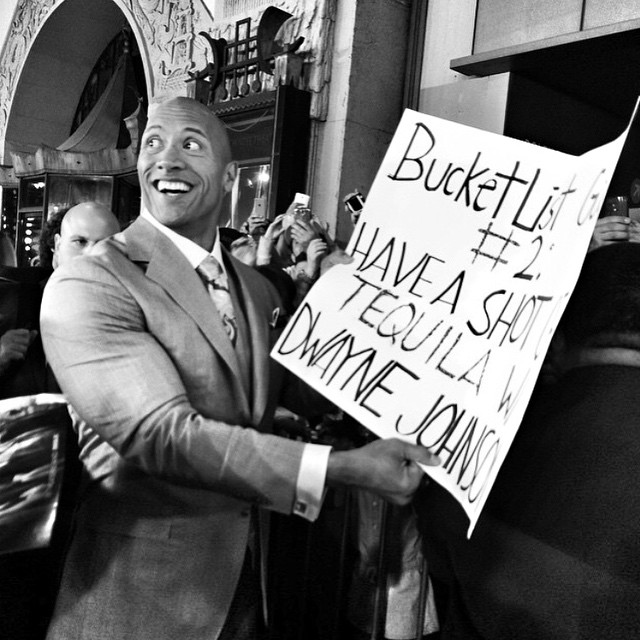 BUCKET LIST G
#2:
HAVE A SHOT
TEQUILA W
DWAYNE JOHNSO